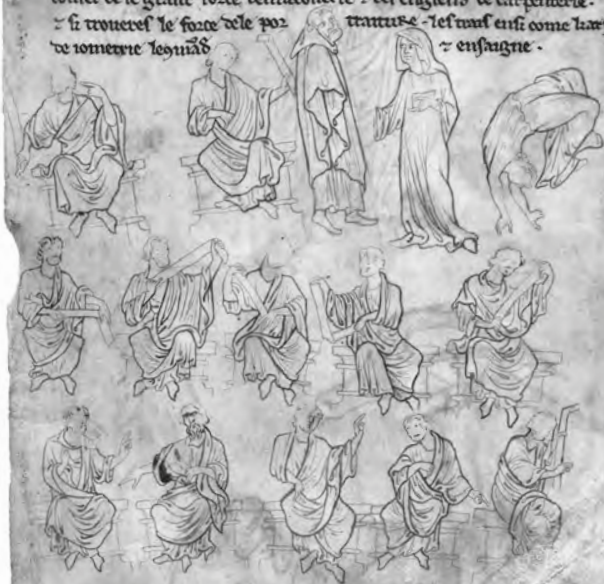 de le grant force demaconerie ⁊ des engiens de carpenterie .
⁊ si troueres le force dele por traiture · les trais ensi come li ars
de iometrie le ꝯmād ⁊ ensaigne .